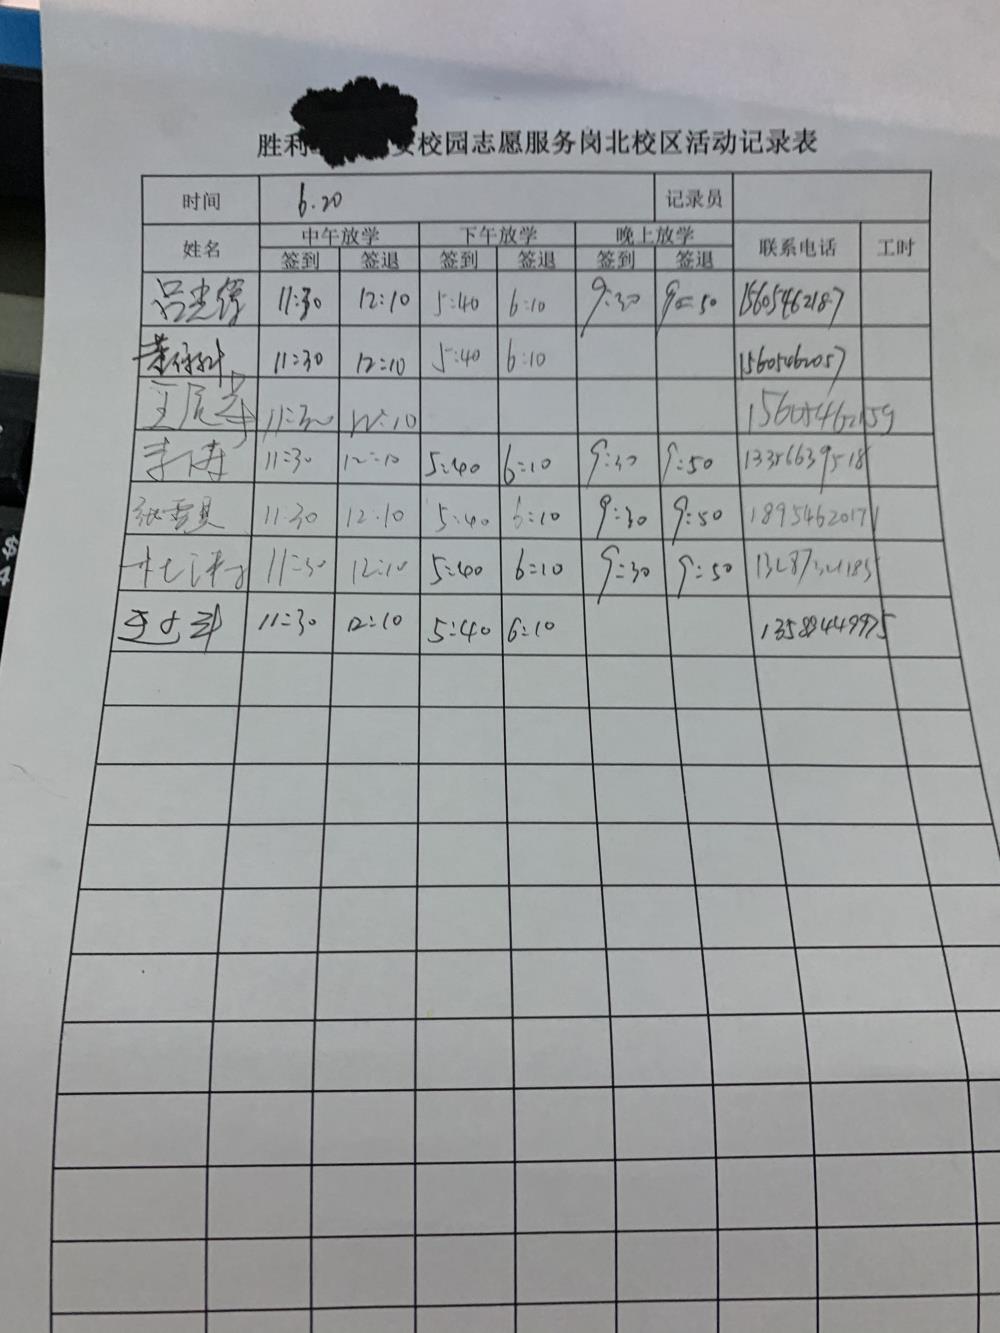 胜利 安校园志愿服务岗北校区活动记录表
时间 6.20 记录员
姓名 中午放学 下午放学 晚上放学 联系电话 工时
签到 签退 签到 签退 签到 签退
11:30 12:10 5:40 6:10 9:30 9:50 15605462187
11:30 12:10 5:40 6:10 15605462057
11:30 12:10 15605462159
李涛 11:30 12:10 5:40 6:10 9:30 9:50
11:30 12:10 5:40 6:10 9:30 9:50 18954620171
11:30 12:10 5:40 6:10 9:30 9:50
11:30 12:10 5:40 6:10